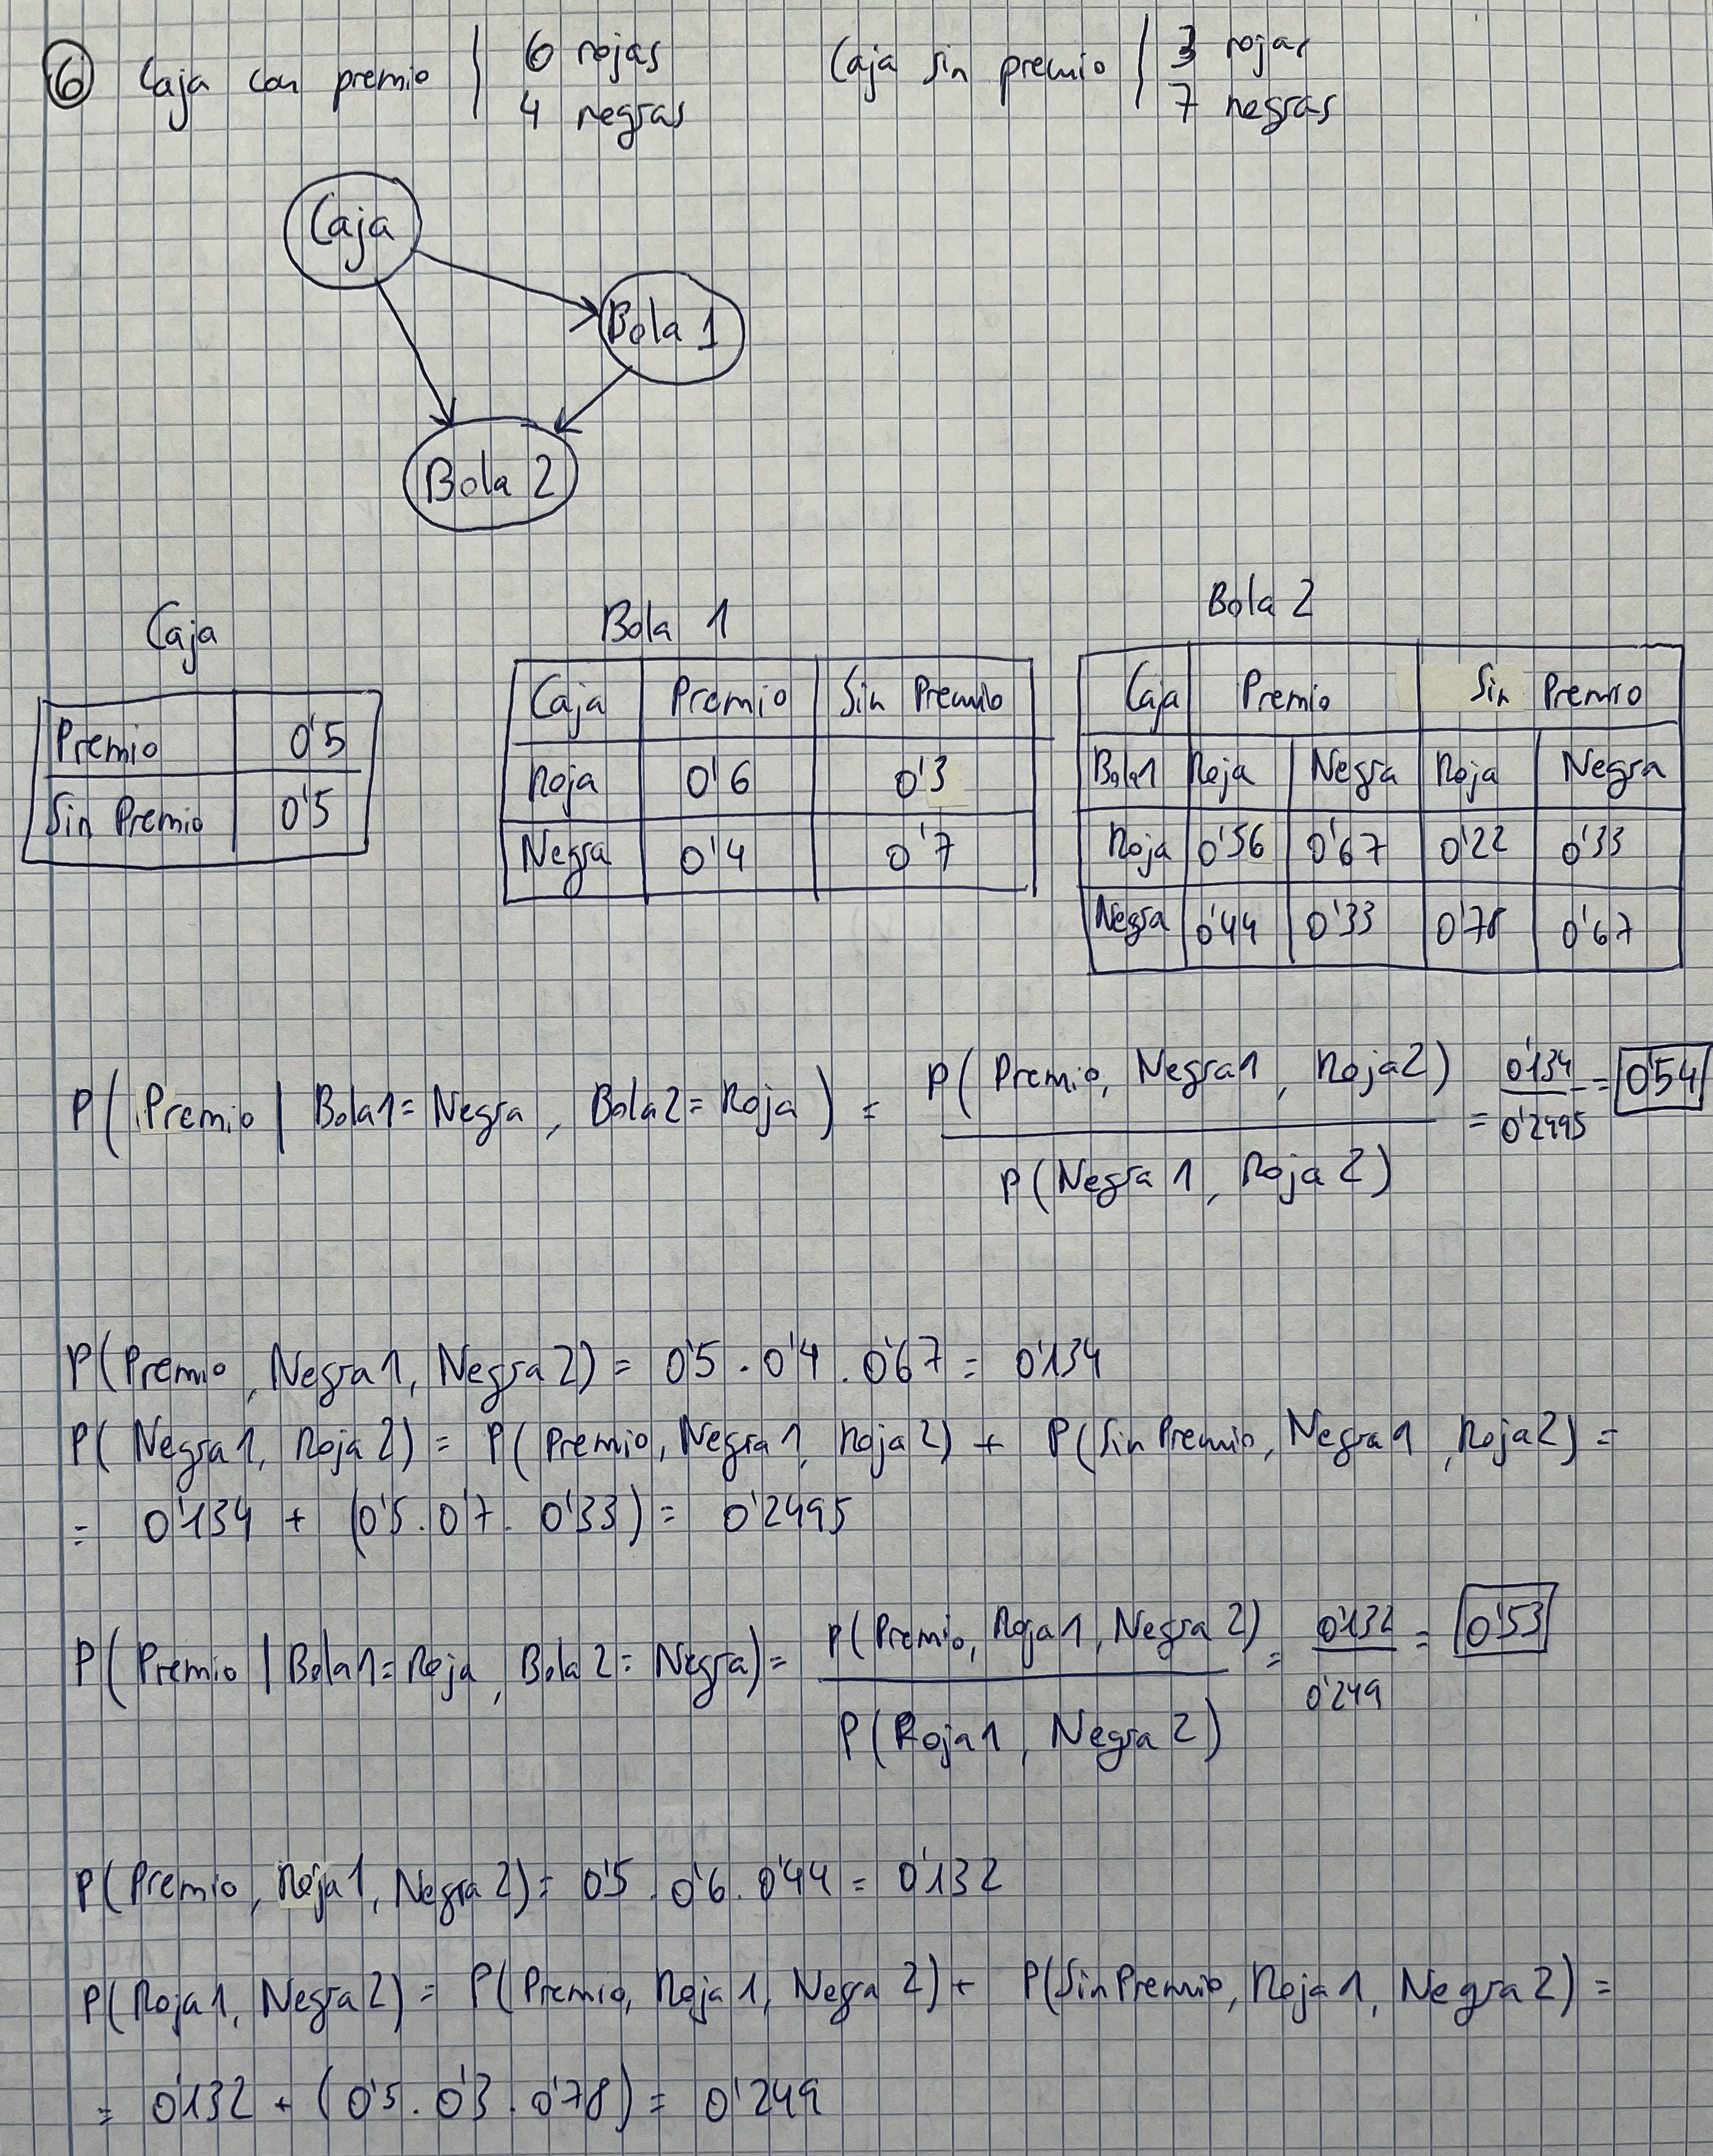 6 Caja con premio | 6 rojas Caja sin premio | 3 rojas
4 negras 7 negras
Caja
Bola 1
Bola 2
Caja
Premio 0'5
Sin Premio 0'5
Bola 1
Caja Premio Sin Premio
Roja 0'6 0'3
Negra 0'4 0'7
Bola 2
Caja Premio Sin Premio
Bola1 Roja Negra Roja Negra
Roja 0'56 0'67 0'22 0'33
Negra 0'44 0'33 0'78 0'67
P(Premio | Bola1 = Negra, Bola2 = Roja) = P(Premio, Negra1, Roja2) / P(Negra1, Roja2) = 0'134 / 0'2495 = 0'54
P(Premio, Negra1, Negra2) = 0'5 · 0'4 · 0'67 = 0'134
P(Negra1, Roja2) = P(Premio, Negra1, Roja2) + P(Sin Premio, Negra1, Roja2) =
= 0'134 + (0'5 · 0'7 · 0'33) = 0'2495
P(Premio | Bola1 = Roja, Bola2 = Negra) = P(Premio, Roja1, Negra2) / P(Roja1, Negra2) = 0'132 / 0'249 = 0'53
P(Premio, Roja1, Negra2) = 0'5 · 0'6 · 0'44 = 0'132
P(Roja1, Negra2) = P(Premio, Roja1, Negra2) + P(Sin Premio, Roja1, Negra2) =
= 0'132 + (0'5 · 0'3 · 0'78) = 0'249